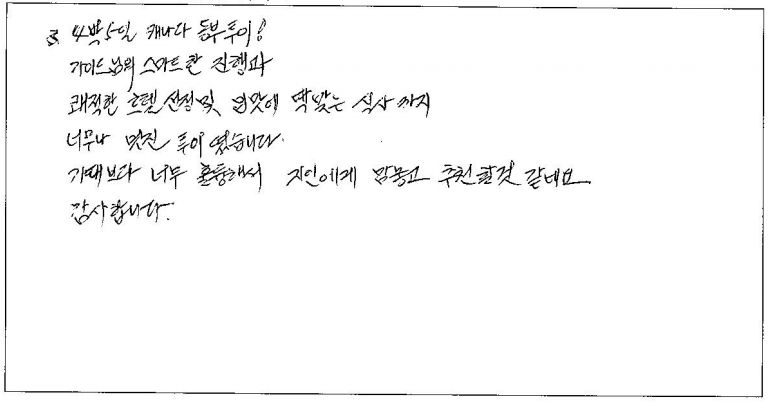 4박5일 캐나다 동부투어!
가이드님의 스마트한 진행과
쾌적한 호텔선정및 입맛에 딱맞는 식사까지
너무나 멋진 투어였습니다.
기대보다 너무 훌륭해서 지인에게 맘놓고 추천할것 같네요
감사합니다.